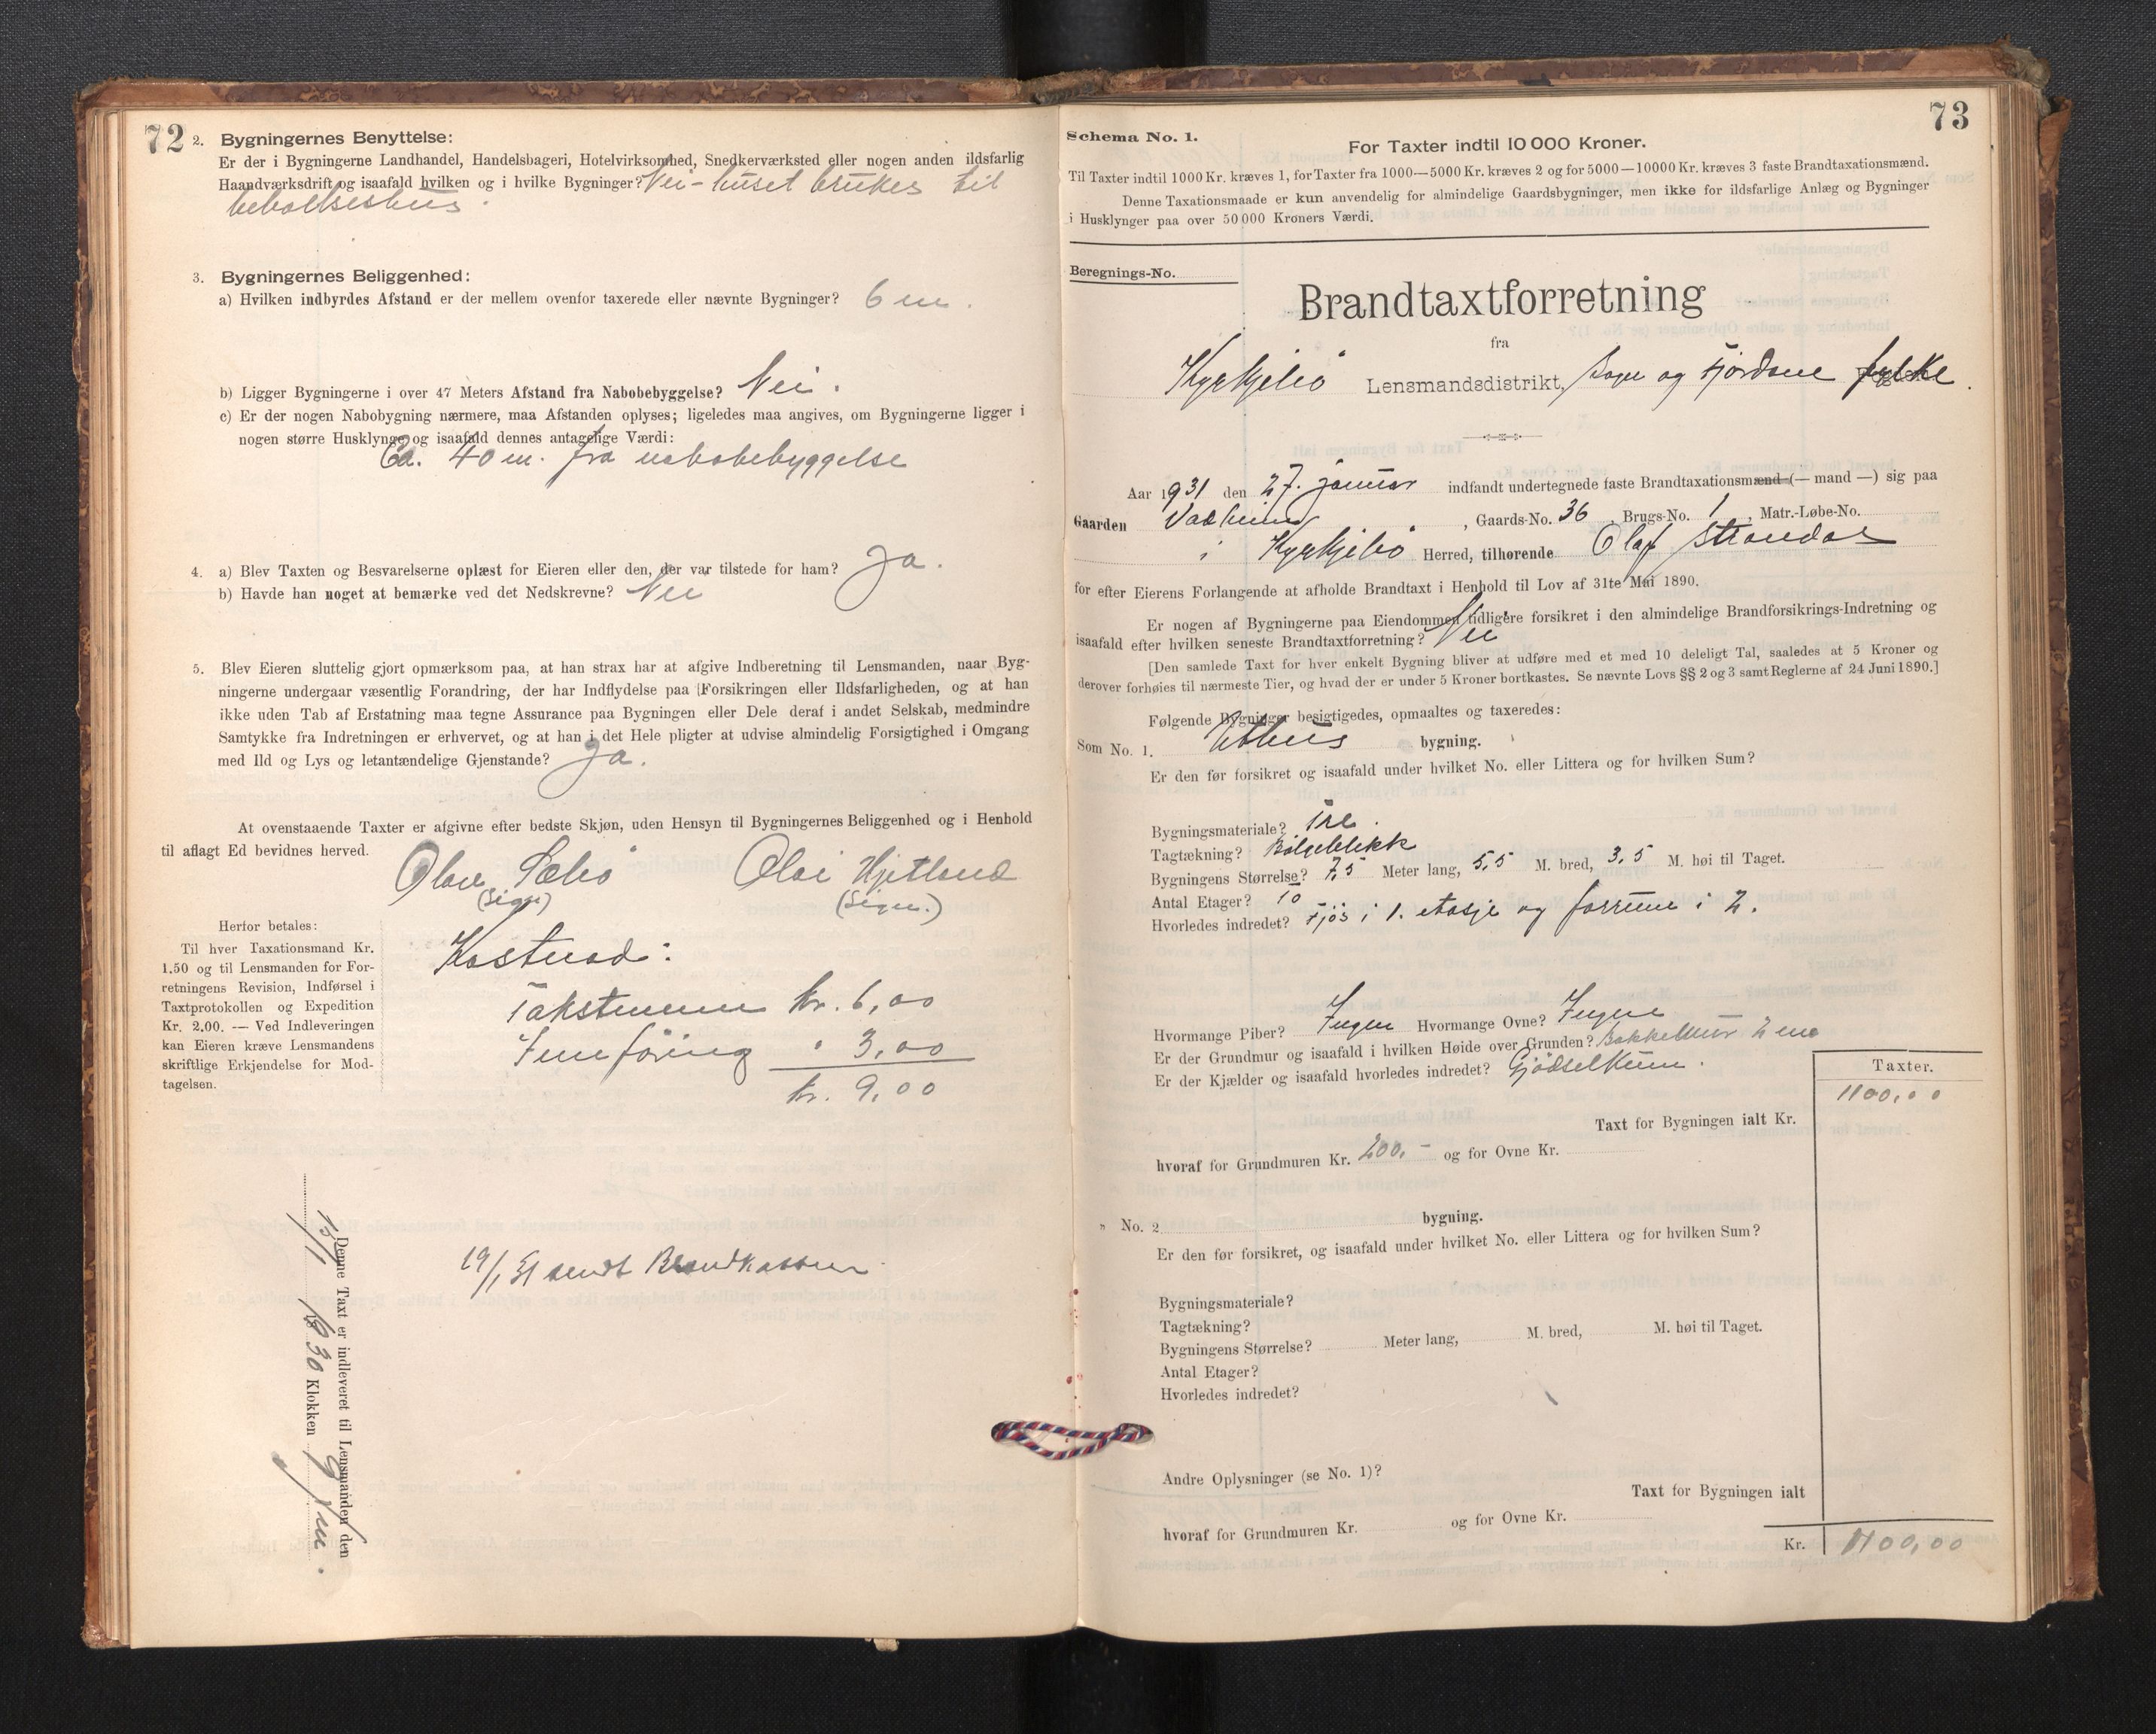 72
2. Bygningernes Benyttelse:
Er der i Bygningerne Landhandel, Handelsbageri, Hotelvirksomhed, Snedkerværksted eller nogen anden ildsfarlig
Haandværksdrift og isaafald hvilken og i hvilke Bygninger? Nei - huset brukes til
beboelseshus.
3. Bygningernes Beliggenhed:
a) Hvilken indbyrdes Afstand er der mellem ovenfor taxerede eller nævnte Bygninger? 6 m.
b) Ligger Bygningerne i over 47 Meters Afstand fra Nabobebyggelse? Nei.
c) Er der nogen Nabobygning nærmere, maa Afstanden oplyses; ligeledes maa angives, om Bygningerne ligger i
nogen større Husklynge og isaafald dennes antagelige Værdi:
Ca. 40 m. fra nabobebyggelse
4. a) Blev Taxten og Besvarelserne oplæst for Eieren eller den, der var tilstede for ham? Ja.
b) Havde han noget at bemærke ved det Nedskrevne? Nei
5. Blev Eieren sluttelig gjort opmærksom paa, at han strax har at afgive Indberetning til Lensmanden, naar Byg-
ningerne undergaar væsentlig Forandring, der har Indflydelse paa Forsikringen eller Ildsfarligheden, og at han
ikke uden Tab af Erstatning maa tegne Assurance paa Bygningen eller Dele deraf i andet Selskab, medmindre
Samtykke fra Indretningen er erhvervet, og at han i det Hele pligter at udvise almindelig Forsigtighed i Omgang
med Ild og Lys og letantændelige Gjenstande? Ja.
At ovenstaaende Taxter er afgivne efter bedste Skjøn, uden Hensyn til Bygningernes Beliggenhed og i Henhold
til aflagt Ed bevidnes herved.
Olav Sæbö Olai Hjetland
(sign) (sign.)
Herfor betales:
Til hver Taxationsmand Kr.
1.50 og til Lensmanden for For-
retningens Revision, Indførsel i
Taxtprotokollen og Expedition
Kr. 2.00. — Ved Indleveringen
kan Eieren kræve Lensmandens
skriftlige Erkjendelse for Mod-
tagelsen.
Kostnad:
Takstmenn kr. 6,00
Innföring " 3,00
kr. 9,00
Denne Taxt er indleveret til Lensmanden den
1930 Klokken 9
19/1 31 sendt Brandkassen
73
Schema No. 1.
For Taxter indtil 10 000 Kroner.
Til Taxter indtil 1000 Kr. kræves 1, for Taxter fra 1000—5000 Kr. kræves 2 og for 5000—10000 Kr. kræves 3 faste Brandtaxationsmænd.
Denne Taxationsmaade er kun anvendelig for almindelige Gaardsbygninger, men ikke for ildsfarlige Anlæg og Bygninger
i Husklynger paa over 50 000 Kroners Værdi.
Beregnings-No.
Brandtaxtforretning
fra
Kyrkjebö Lensmandsdistrikt, Sogn og Fjordane fylke.
Aar 1931 den 27. januar indfandt undertegnede faste Brandtaxationsmænd (— mand —) sig paa
Gaarden Vadheim, Gaards-No. 36, Brugs-No. 1, Matr.-Løbe-No.
i Kyrkjebö Herred, tilhørende Olaf Strandos
for efter Eierens Forlangende at afholde Brandtaxt i Henhold til Lov af 31te Mai 1890.
Er nogen af Bygningerne paa Eiendommen tidligere forsikret i den almindelige Brandforsikrings-Indretning og
isaafald efter hvilken seneste Brandtaxtforretning? Nei
[Den samlede Taxt for hver enkelt Bygning bliver at udføre med et med 10 deleligt Tal, saaledes at 5 Kroner og
derover forhøies til nærmeste Tier, og hvad der er under 5 Kroner bortkastes. Se nævnte Lovs §§ 2 og 3 samt Reglerne af 24 Juni 1890.]
Følgende Bygninger besigtigedes, opmaaltes og taxeredes:
Som No. 1. Uthus bygning.
Er den før forsikret og isaafald under hvilket No. eller Littera og for hvilken Sum?
Bygningsmateriale? Tre.
Tagtækning? Bölgeblikk
Bygningens Størrelse? 7,5 Meter lang, 5,5 M. bred, 3,5 M. høi til Taget.
Antal Etager? To
Hvorledes indredet? Fjös i 1. etasje og forrum i 2.
Hvormange Piber? Ingen Hvormange Ovne? Ingen
Er der Grundmur og isaafald i hvilken Høide over Grunden? Bakkemur 2 m
Er der Kjælder og isaafald hvorledes indredet? Gjödselkum.
Taxter.
1100,00
Taxt for Bygningen ialt Kr.
hvoraf for Grundmuren Kr. 200,- og for Ovne Kr.
" No. 2 bygning.
Er den før forsikret, og isaafald under hvilket No. eller Littera og for hvilken Sum?
Bygningsmateriale?
Tagtækning?
Bygningens Størrelse? Meter lang, M. bred, M. høi til Taget.
Antal Etager?
Hvorledes indredet?
Andre Oplysninger (se No. 1)?
Taxt for Bygningen ialt
hvoraf for Grundmuren Kr. og for Ovne Kr.
Kr. 1100,00